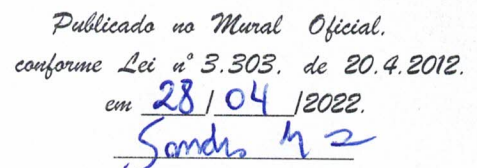 Publicado no Mural Oficial.
conforme Lei nº 3.303. de 20.4.2012.
em 28/04/2022.